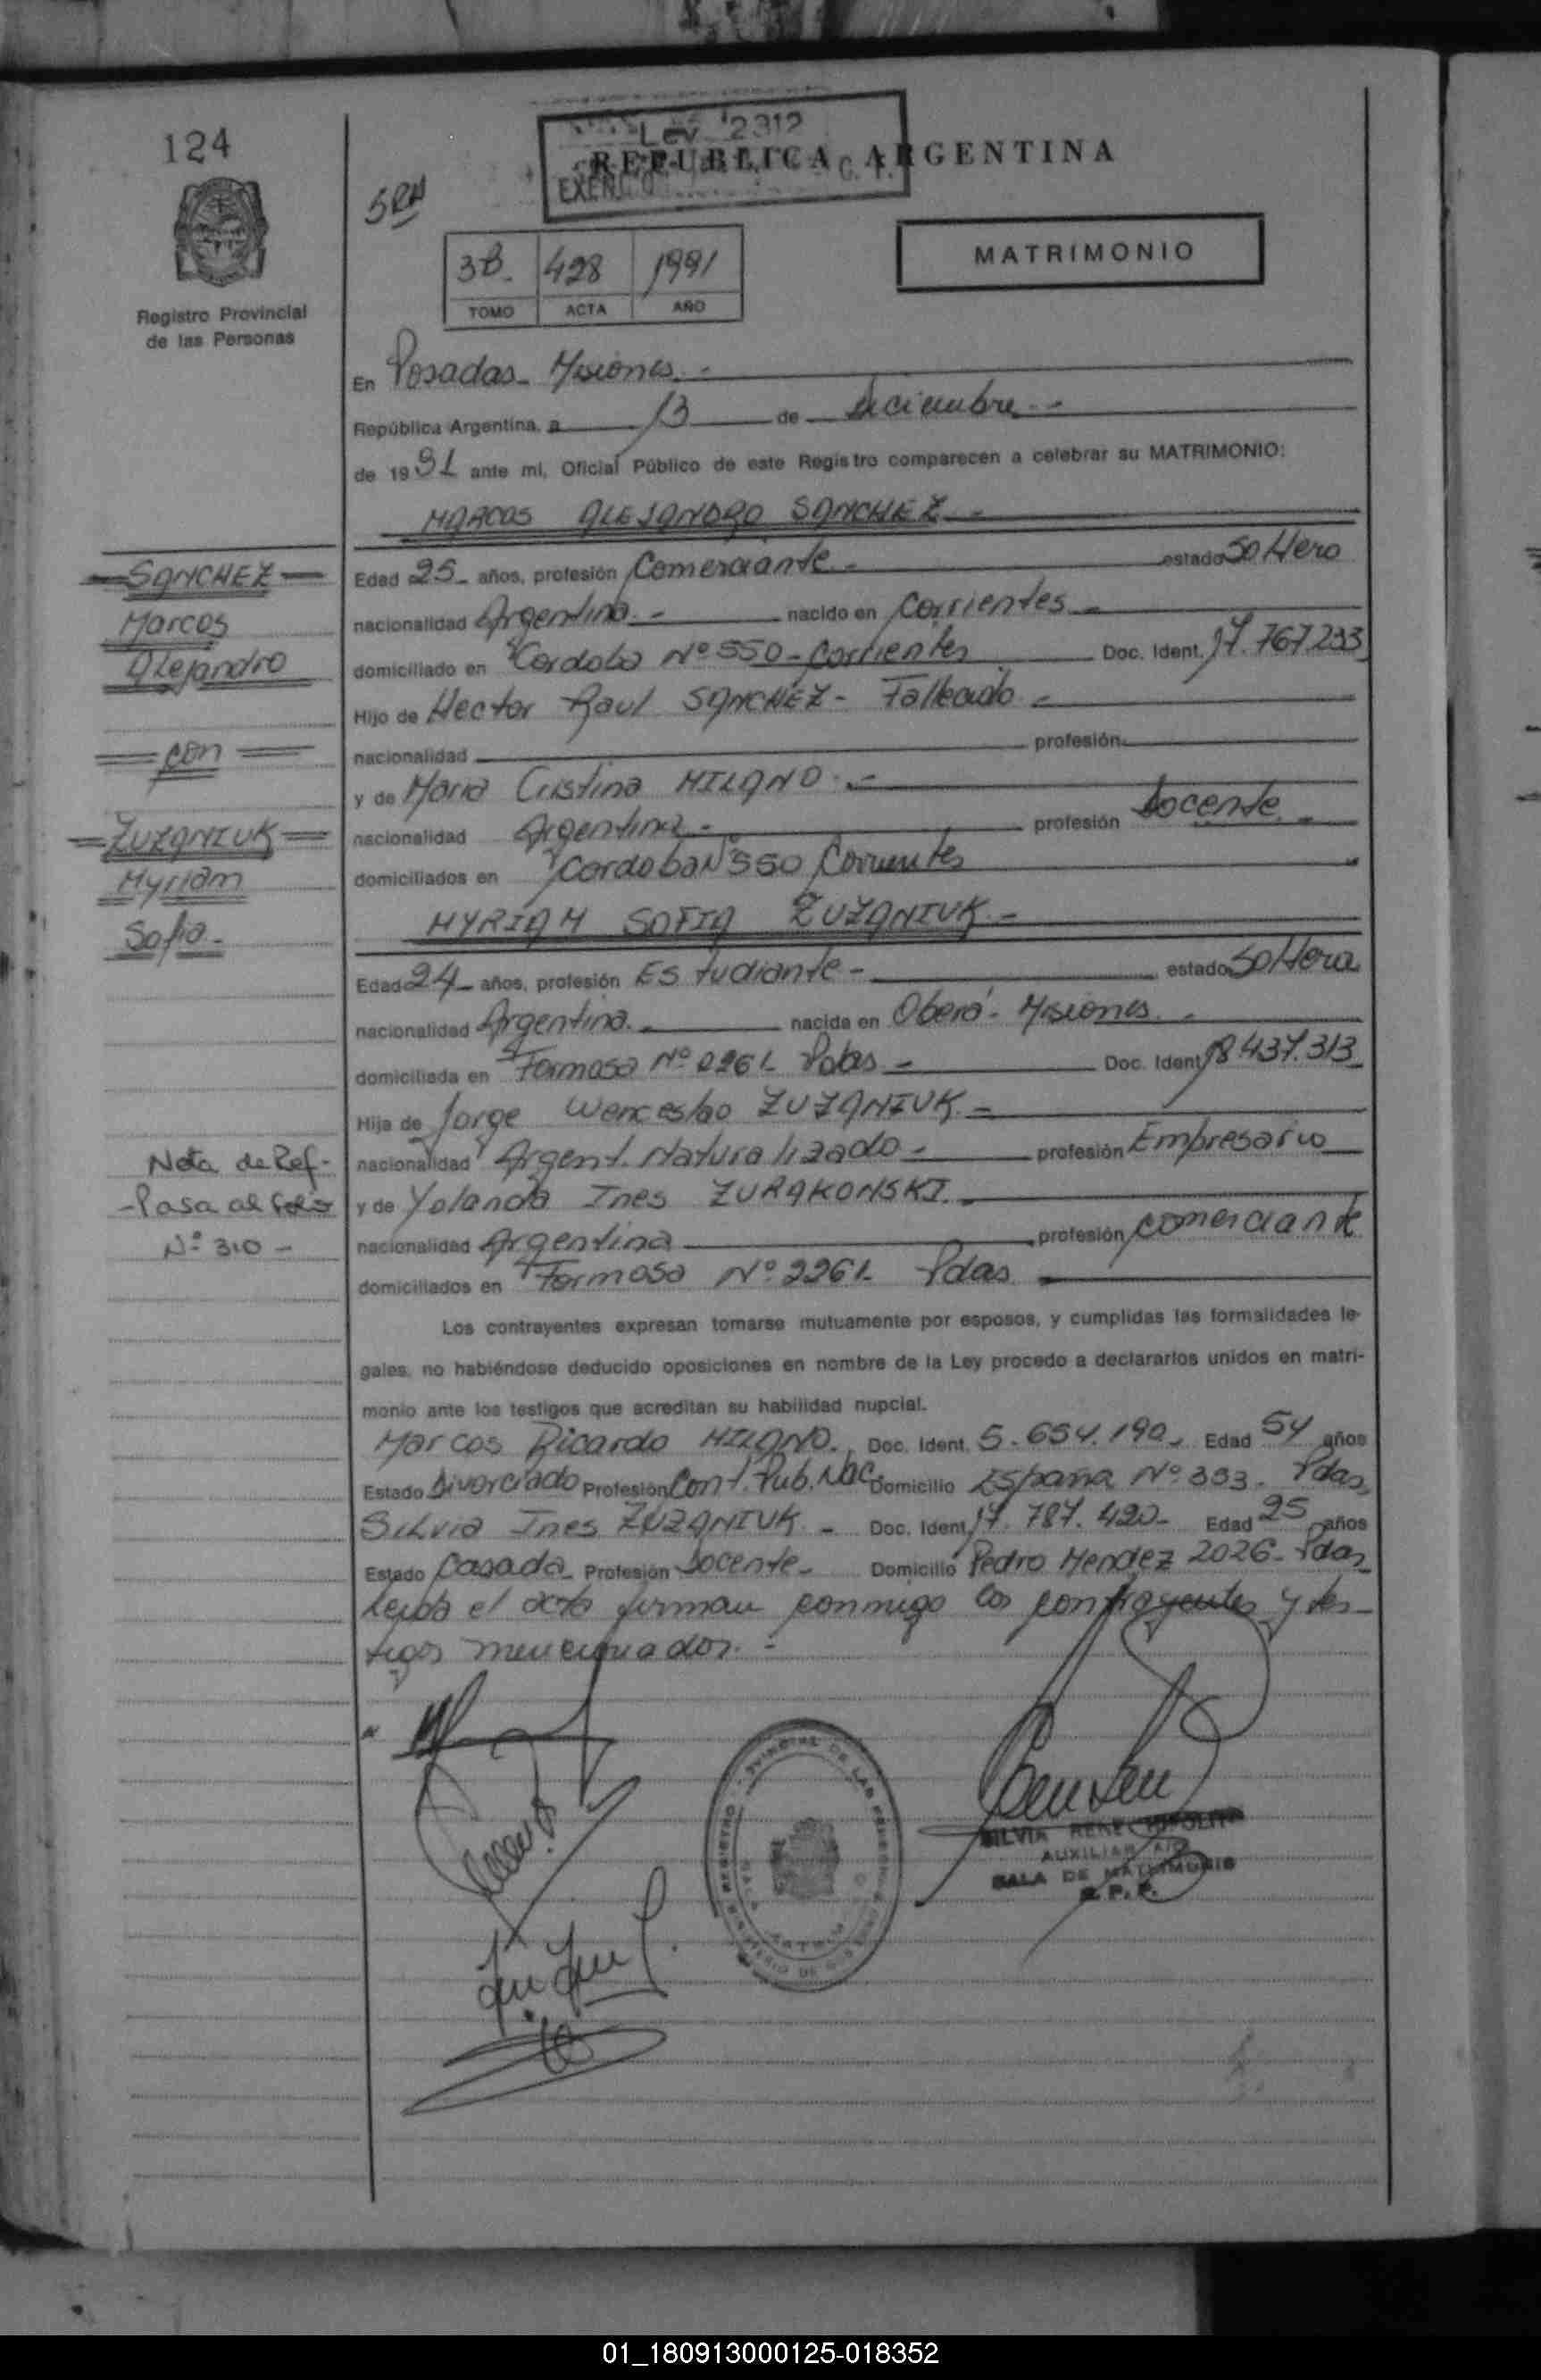 124
Ley 2312
REPUBLICA ARGENTINA
SRN
3B. 428 1991
TOMO ACTA AÑO
MATRIMONIO
Registro Provincial
de las Personas
En Posadas - Misiones.-
República Argentina, a 13 de Diciembre.-
de 1991 ante mi, Oficial Público de este Registro comparecen a celebrar su MATRIMONIO:
MARCOS ALEJANDRO SANCHEZ.-
SANCHEZ
Marcos
Alejandro
con
ZUZANIUK
Myriam
Sofia.-
Edad 25 años, profesión Comerciante.- estado Soltero
nacionalidad Argentina.- nacido en Corrientes.-
domiciliado en Cordoba Nº 550 - Corrientes Doc. Ident. 17.767.233
Hijo de Hector Raul SANCHEZ - Fallecido.-
nacionalidad profesión
y de Maria Cristina MILANO.-
nacionalidad Argentina.- profesión Docente.-
domiciliados en Cordoba Nº 550 Corrientes
MYRIAM SOFIA ZUZANIUK.-
Edad 24 años, profesión Estudiante.- estado Soltera
nacionalidad Argentina.- nacida en Oberá - Misiones.-
domiciliada en Formosa Nº 2261 Pdas.- Doc. Ident. 18.437.313
Hija de Jorge Wenceslao ZUZANIUK.-
nacionalidad Argent. Naturalizado.- profesión Empresario
y de Yolanda Ines ZURAKOWSKI.-
nacionalidad Argentina profesión comerciante
domiciliados en Formosa Nº 2261 Pdas
Nota de Ref-
-Pasa al folio
Nº 310 -
Los contrayentes expresan tomarse mutuamente por esposos, y cumplidas las formalidades le-
gales, no habiéndose deducido oposiciones en nombre de la Ley procedo a declararlos unidos en matri-
monio ante los testigos que acreditan su habilidad nupcial.
Marcos Ricardo MILANO. Doc. Ident. 5.654.190. Edad 54 años
Estado Divorciado Profesión Cont. Pub. Nac. Domicilio España Nº 393. Pdas.
Silvia Ines ZUZANIUK.- Doc. Ident. 17.787.420.- Edad 25 años
Estado Casada Profesión Docente.- Domicilio Pedro Mendez 2026 - Pdas.
Leida el acta firman conmigo los contrayentes y tes-
tigos mencionados.-
SILVIA RENEE HIPOLITA
AUXILIAR
SALA DE MATRIMONIO
R. P. P.
01_180913000125-018352